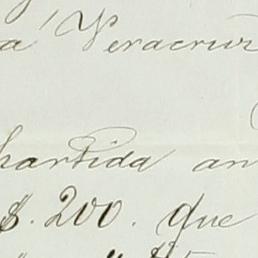 a Veracruz
partida an
$. 200. que